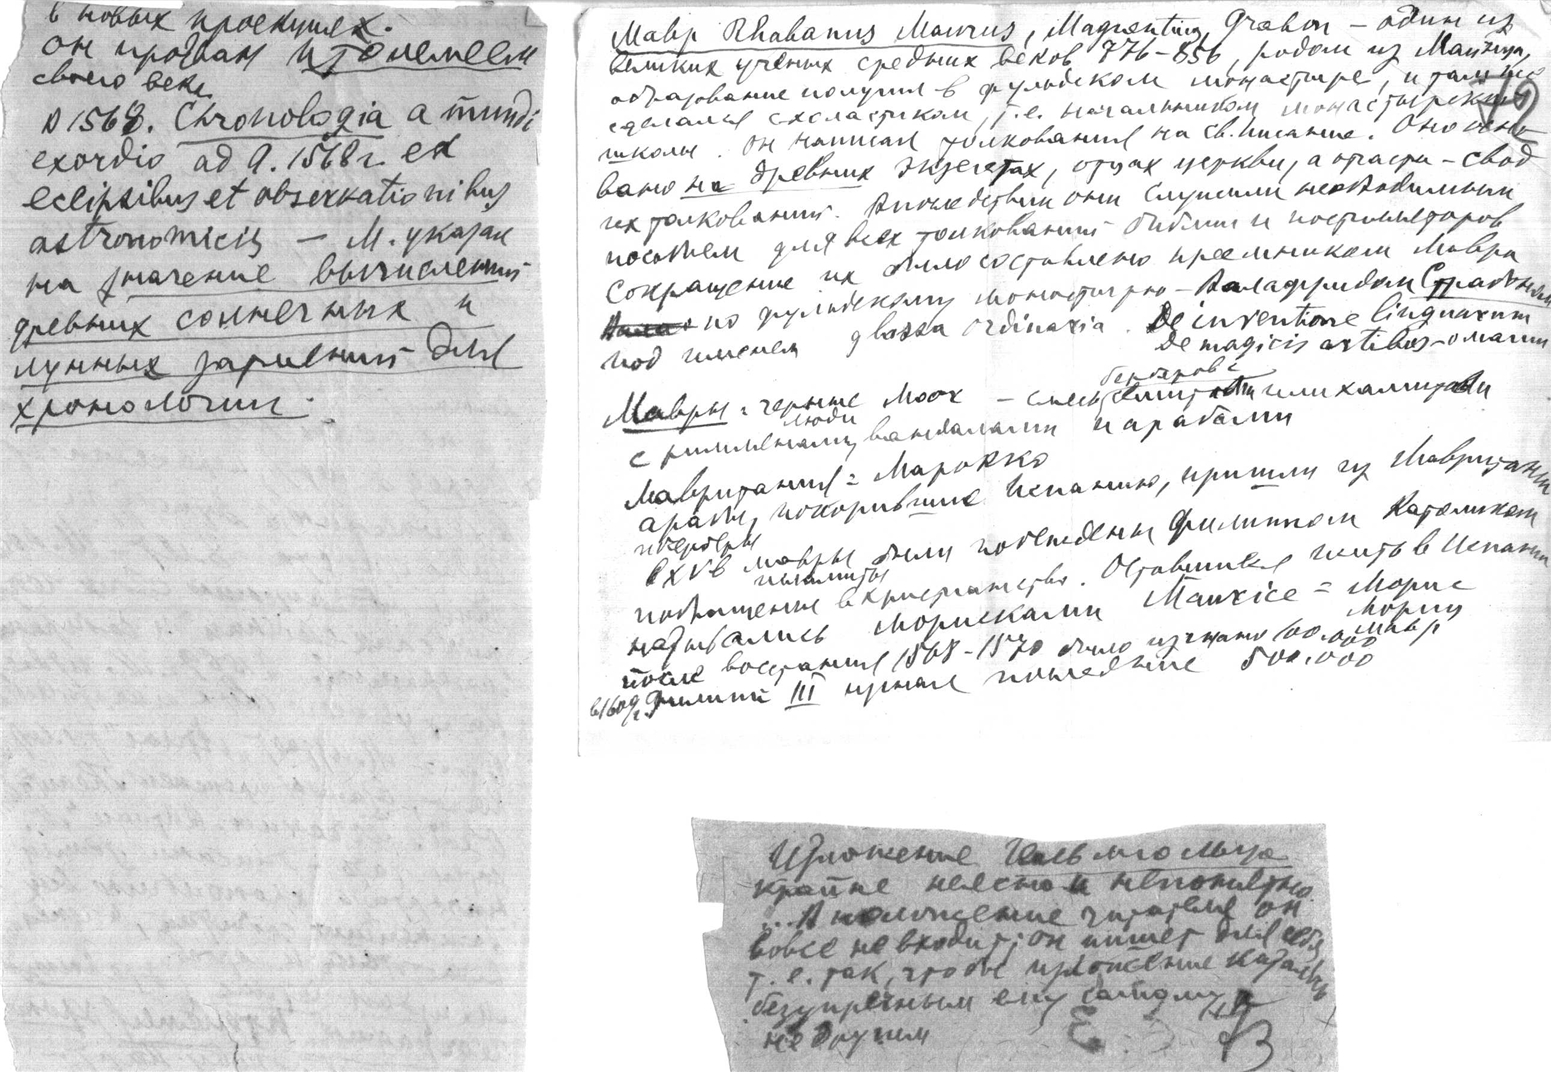 в новых проекциях.
он прозван Птолемеем
своего века
в 1568. Chronologia a mundi
exordio ad a. 1568 г. ex
eclipsibus et observationibus
astronomicis — М. указал
на значение вычислений
древних солнечных и
лунных затмений для
хронологии.
Мавр Rhabanus Maurus, Magnentius, Граban — один из
великих ученых средних веков 776-856, родом из Майнца,
образование получил в фульдском монастыре, и там же
сделался схоластиком, т.е. начальником монастырской
школы. Он написал толкования на св. писание. Оно осно-
вано на древних экзегетах, отцах церкви, а отчасти – свод
их толкований. Впоследствии они служили необходимым
пособием для всех толкований библии и постилляторов
Сокращение их было составлено преемником Мавра
по фульдскому монастырю – Валафридом Страбоном
под именем glossa ordinaria. De inventione linguarum
De magicis artibus – о магии
берберов с
Мавры = черные Moor – смесь или хамитов
люди
с римлянами, вандалами и арабами
Мавритания = Марокко
арабы, покорившие Испанию, пришли из Мавритании
и берберы
в XV в мавры были побеждены Филиппом Католиком
обращены в христианство. Оставшиеся жить в Испании
назывались морисками Maurice = Морис
Мориц
Мавр
после восстания 1568-1570 было изгнано 100.000
в 1609 г. Филипп III изгнал последние 500.000
19
Изложение Гельмгольца
крайне неясно и непонятно
... В положение читателя он
вовсе не входит; он пишет для себя
т.е. так, чтобы изложение казалось
безупречным ему самому, а
не другим